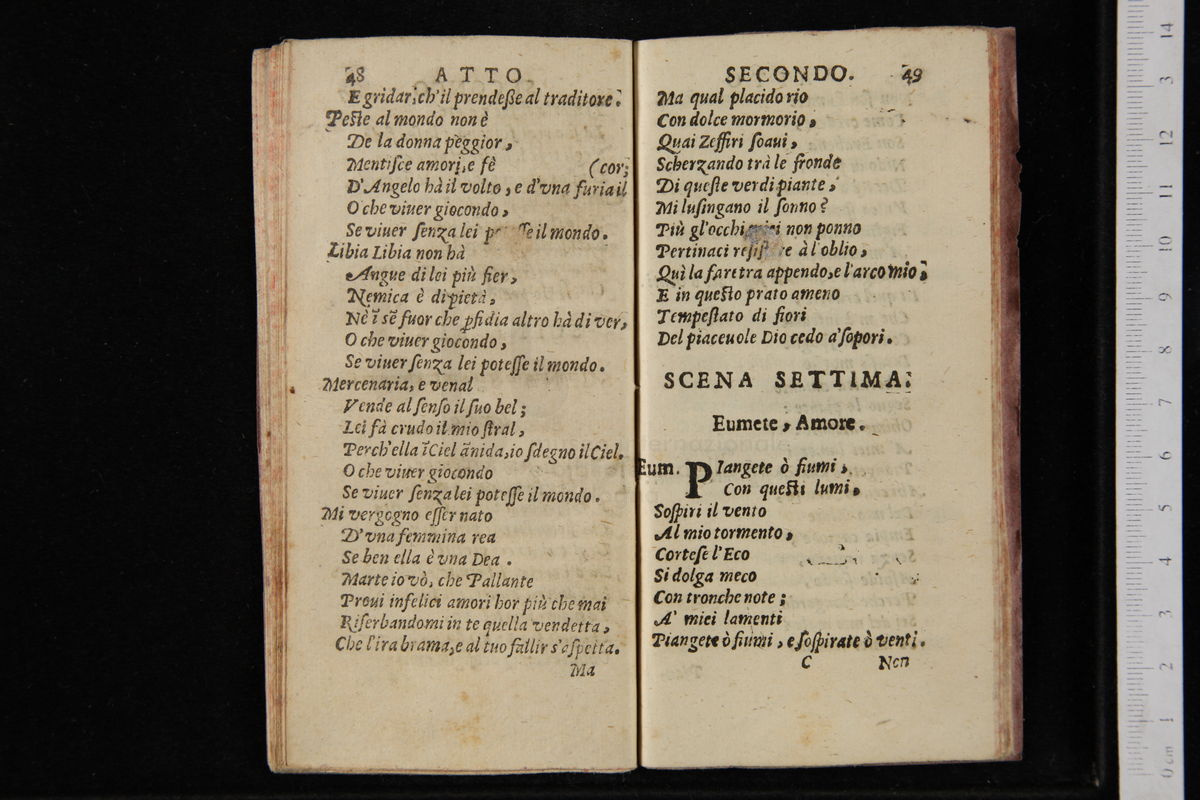 48 ATTO
E gridar, ch'il prendeße al traditore.
Peste al mondo non è
De la donna peggior,
Mentisce amori, e fè (cor;
D'Angelo hà il volto, e d'vna furia il
O che viuer giocondo,
Se viuer senza lei il mondo.
Libia Libia non hà
Angue di lei più fier,
Nemica è di pietà,
Nè ĩ sẽ fuor che ꝑfidia altro hà di ver,
O che viuer giocondo,
Se viuer senza lei potesse il mondo.
Mercenaria, e venal
Vende al senso il suo bel;
Lei fà crudo il mio stral,
Perch'ella ĩ Ciel ãnida, io sdegno il Ciel.
O che viuer giocondo
Se viuer senza lei potesse il mondo.
Mi vergogno esser nato
D'vna femmina rea
Se ben ella è vna Dea.
Marte io vò, che Pallante
Proui infelici amori hor più che mai
Riserbandomi in te quella vendetta,
Che l'ira brama, e al tuo fallir s'aspetta.
Ma
SECONDO. 49
Ma qual placido rio
Con dolce mormorio,
Quai Zeffiri soaui,
Scherzando trà le fronde
Di queste verdi piante,
Mi lusingano il sonno?
Più gl'occhi miei non ponno
Pertinaci resistere à l'oblio,
Quì la faretra appendo, e l'arco mio;
E in questo prato ameno
Tempestato di fiori
Del piaceuole Dio cedo a' sopori.
SCENA SETTIMA.
Eumete, Amore.
Eum. PIangete ò fiumi,
Con questi lumi,
Sospiri il vento
Al mio tormento,
Cortese l'Eco
Si dolga meco
Con tronche note;
A' miei lamenti
Piangete ò fiumi, e sospirate ò venti.
C Non